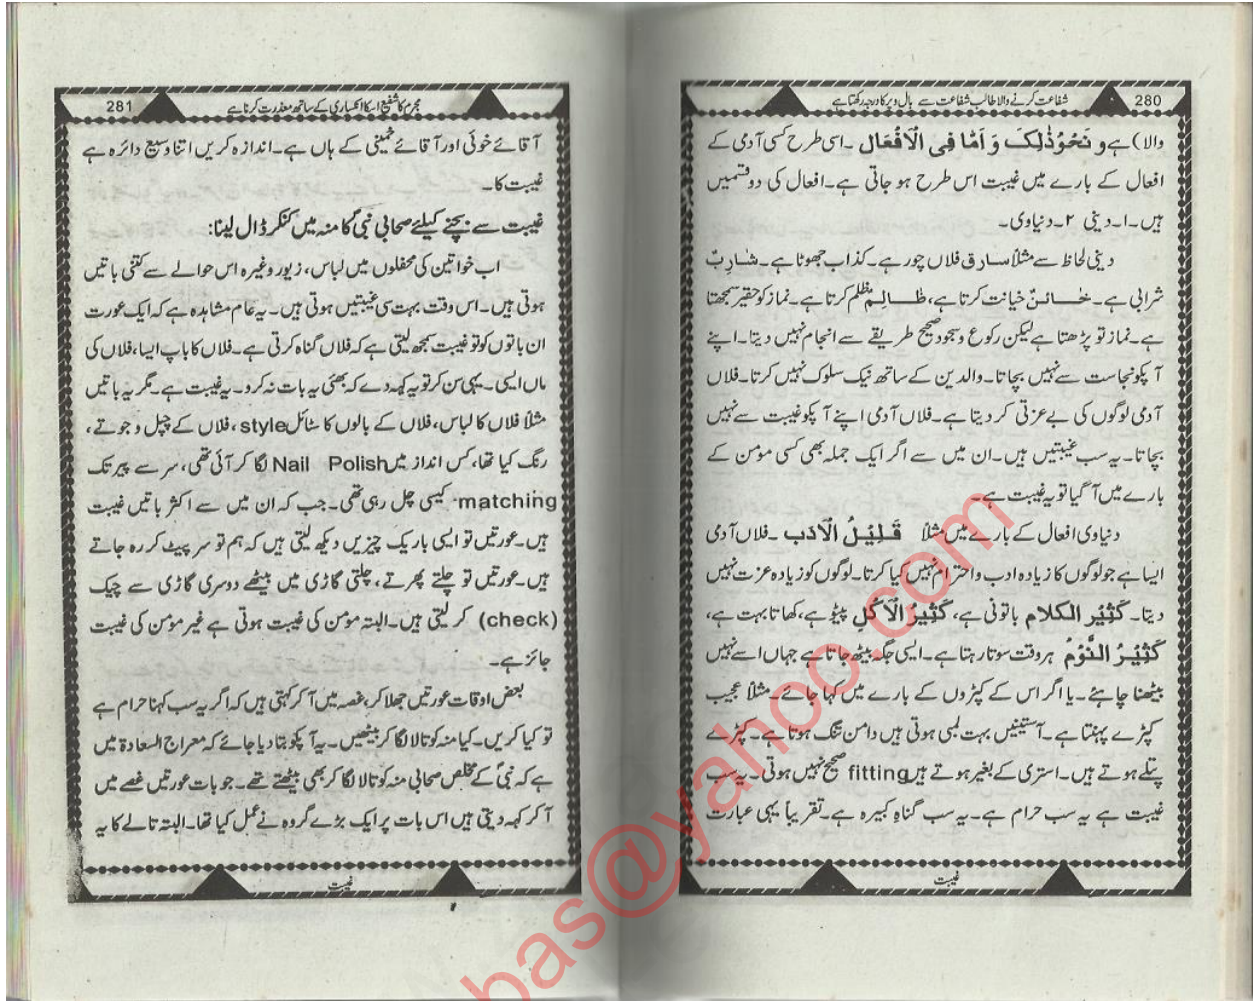 280
شفاعت کرنے والا طالب شفاعت سے بال و پر کا درجہ رکھتا ہے
والا) ہے و نَحْوُذٰلِکَ وَ اَمَّا فِی الْاَفْعَال ۔ اسی طرح کسی آدمی کے
افعال کے بارے میں غیبت اس طرح ہو جاتی ہے۔ افعال کی دو قسمیں
ہیں۔ ۱۔ دینی ۲۔ دنیاوی۔
دینی لحاظ سے مثلاً سارق فلاں چور ہے۔ کذاب جھوٹا ہے۔ شَارِبٌ
شرابی ہے۔ خَائنٌ خیانت کرتا ہے، ظَالِمٌ ظلم کرتا ہے۔ نماز کو حقیر سمجھتا
ہے۔ نماز تو پڑھتا ہے لیکن رکوع و سجود صحیح طریقے سے انجام نہیں دیتا۔ اپنے
آپکو نجاست سے نہیں بچاتا۔ والدین کے ساتھ نیک سلوک نہیں کرتا۔ فلاں
آدمی لوگوں کی بے عزتی کر دیتا ہے۔ فلاں آدمی اپنے آپکو غیبت سے نہیں
بچاتا۔ یہ سب غیبتیں ہیں۔ ان میں سے اگر ایک جملہ بھی کسی مومن کے
بارے میں آ گیا تو یہ غیبت ہے۔
دنیاوی افعال کے بارے میں مثلاً قَلِیْلُ الْاَدَب ۔ فلاں آدمی
ایسا ہے جو لوگوں کا زیادہ ادب و احترام نہیں کیا کرتا۔ لوگوں کو زیادہ عزت نہیں
دیتا۔ کَثِیْر الکلام باتونی ہے، کَثِیْرُ الْاَکْلِ پیٹو ہے، کھاتا بہت ہے،
کَثِیْرُ النَّوْمُ ہر وقت سوتا رہتا ہے۔ ایسی جگہ بیٹھ جاتا ہے جہاں اسے نہیں
بیٹھنا چاہئے۔ یا اگر اس کے کپڑوں کے بارے میں کہا جائے۔ مثلاً عجیب
کپڑے پہنتا ہے۔ آستینیں بہت لمبی ہوتی ہیں دامن تنگ ہوتا ہے۔ کپڑے
پتلے ہوتے ہیں۔ استری کے بغیر ہوتے ہیں fitting صحیح نہیں ہوتی۔ یہ سب
غیبت ہے یہ سب حرام ہے۔ یہ سب گناہِ کبیرہ ہے۔ تقریباً یہی عبارت
غیبت
281
مجرم کا شفیع اسکا انکساری کے ساتھ معذرت کرنا ہے
آقائے خوئی اور آقائے خمینی کے ہاں ہے۔ اندازہ کریں اتنا وسیع دائرہ ہے
غیبت کا۔
غیبت سے بچنے کیلئے صحابی نبیؐ کا منہ میں کنکر ڈال لینا:
اب خواتین کی محفلوں میں لباس، زیور وغیرہ اس حوالے سے کتنی باتیں
ہوتی ہیں۔ اس وقت بہت سی غیبتیں ہوتی ہیں۔ یہ عام مشاہدہ ہے کہ ایک عورت
ان باتوں کو تو غیبت سمجھ لیتی ہے کہ فلاں گناہ کرتی ہے۔ فلاں کا باپ ایسا، فلاں کی
ماں ایسی۔ یہی سن کر تو یہ کہہ دے کہ بھئی یہ بات نہ کرو۔ یہ غیبت ہے۔ مگر یہ باتیں
مثلاً فلاں کا لباس، فلاں کے بالوں کا سٹائل style، فلاں کے چپل و جوتے،
رنگ کیا تھا، کس انداز میں Nail Polish لگا کر آئی تھی، سر سے پیر تک
matching کیسی چل رہی تھی۔ جب کہ ان میں سے اکثر باتیں غیبت
ہیں۔ عورتیں تو ایسی باریک چیزیں دیکھ لیتی ہیں کہ ہم تو سر پیٹ کر رہ جاتے
ہیں۔ عورتیں تو چلتے پھرتے، چلتی گاڑی میں بیٹھے دوسری گاڑی سے چیک
(check) کر لیتی ہیں۔ البتہ مومن کی غیبت ہوتی ہے غیر مومن کی غیبت
جائز ہے۔
بعض اوقات عورتیں جھلا کر، غصہ میں آ کر کہتی ہیں کہ اگر یہ سب کہنا حرام ہے
تو کیا کریں۔ کیا منہ کو تالا لگا کر بیٹھیں۔ یہ آپکو بتا دیا جائے کہ معراج السعادۃ میں
ہے کہ نبیؐ کے مخلص صحابی منہ کو تالا لگا کر بھی بیٹھتے تھے۔ جو بات عورتیں غصے میں
آ کر کہہ دیتی ہیں اس بات پر ایک بڑے گروہ نے عمل کیا تھا۔ البتہ تالے کا یہ
غیبت
bas@yahoo.com